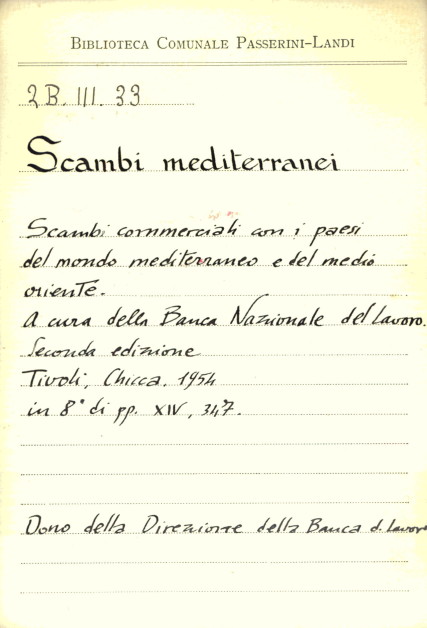 BIBLIOTECA COMUNALE PASSERINI-LANDI
2B. III. 33
Scambi mediterranei
Scambi commerciali con i paesi
del mondo mediterraneo e del medio
oriente.
A cura della Banca Nazionale del Lavoro.
Seconda edizione
Tivoli, Chicca, 1954
in 8° di pp. XIV, 347.
Dono della Direzione della Banca d. Lavoro